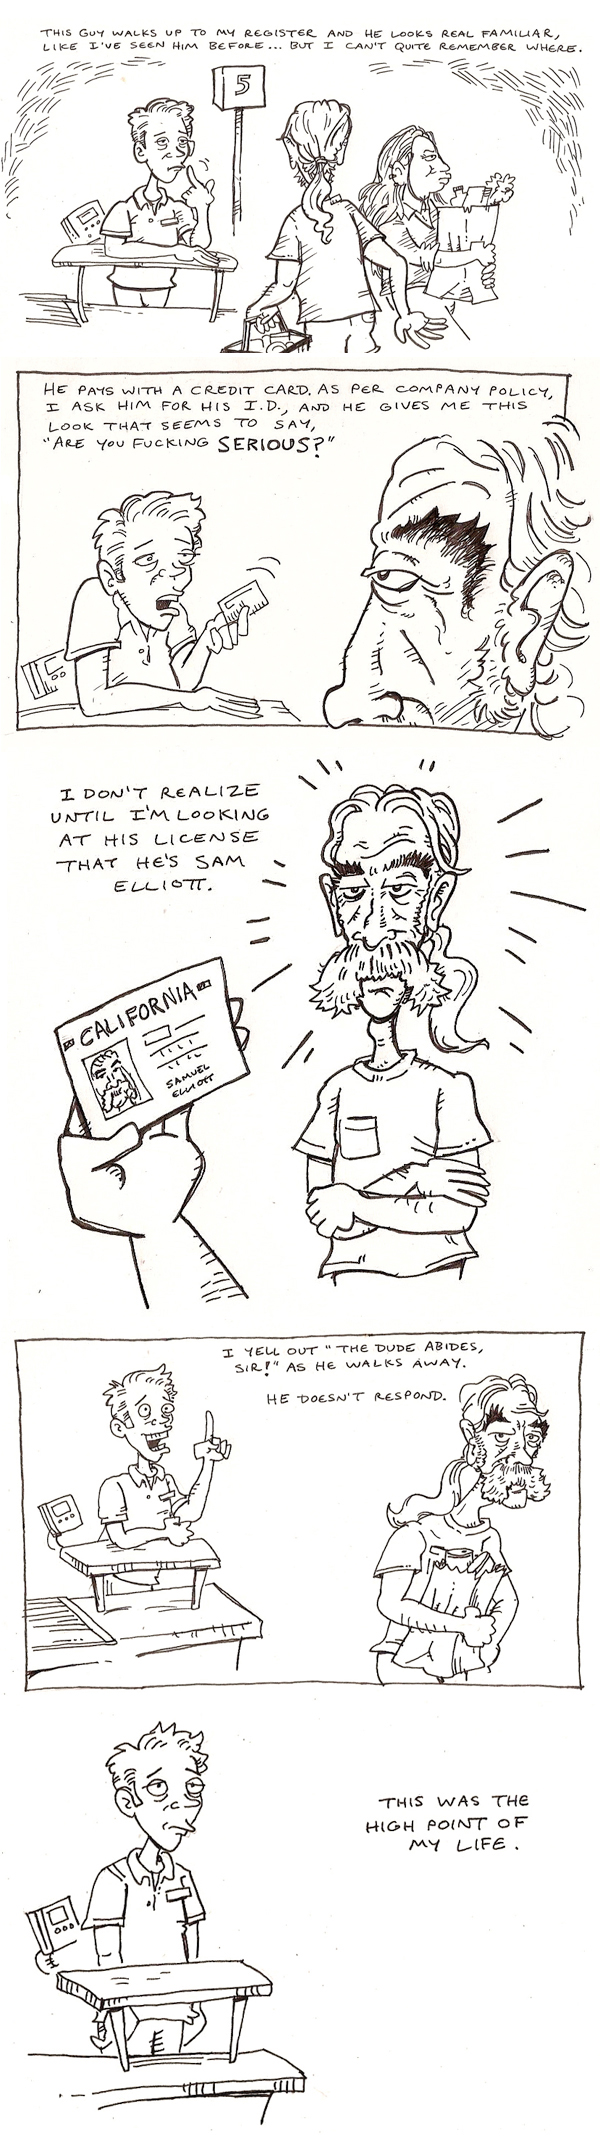 THIS GUY WALKS UP TO MY REGISTER AND HE LOOKS REAL FAMILIAR,
LIKE I'VE SEEN HIM BEFORE... BUT I CAN'T QUITE REMEMBER WHERE.
5
HE PAYS WITH A CREDIT CARD. AS PER COMPANY POLICY,
I ASK HIM FOR HIS I.D., AND HE GIVES ME THIS
LOOK THAT SEEMS TO SAY,
"ARE YOU FUCKING SERIOUS?"
I DON'T REALIZE
UNTIL I'M LOOKING
AT HIS LICENSE
THAT HE'S SAM
ELLIOTT.
CALIFORNIA
SAMUEL
ELLIOTT
I YELL OUT "THE DUDE ABIDES,
SIR!" AS HE WALKS AWAY.
HE DOESN'T RESPOND.
THIS WAS THE
HIGH POINT OF
MY LIFE.